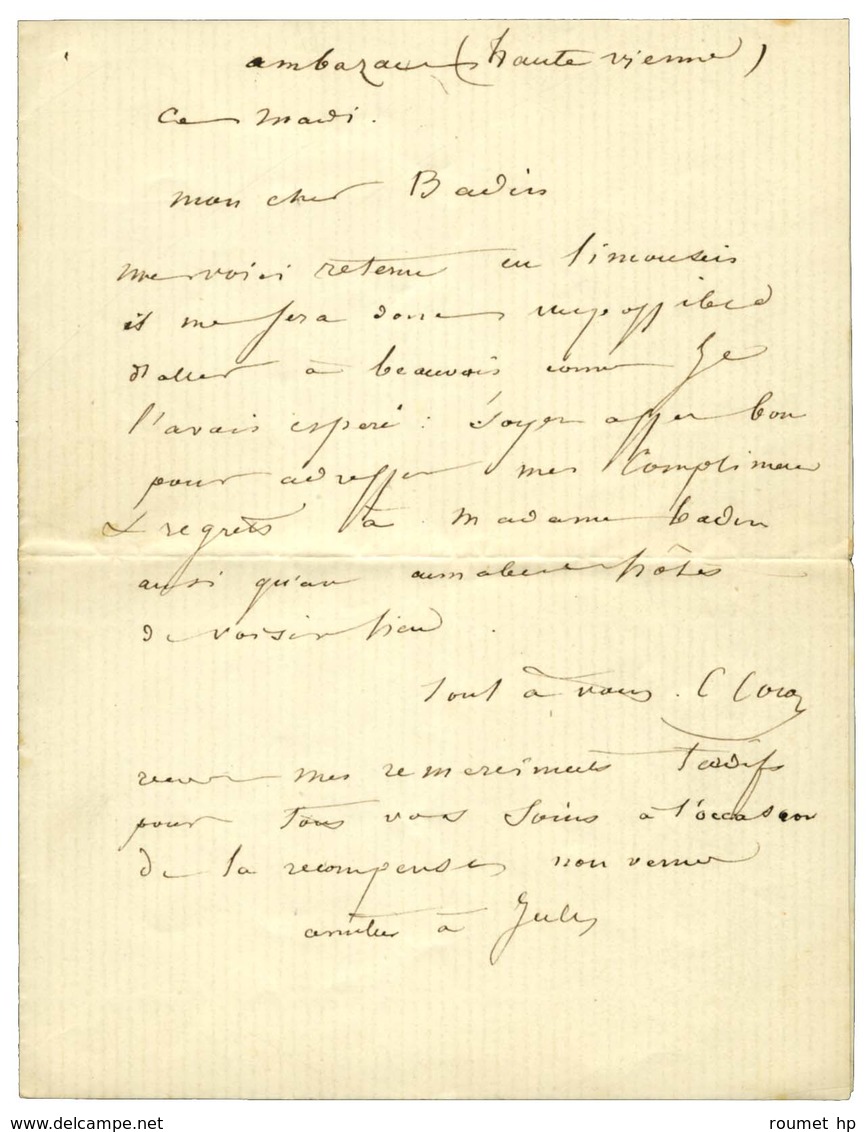 ambazac (haute vienne)
ce mardi.
mon cher Badin
me voici retenu en limousin
il me sera donc impossible
d'aller à beauvais comme Je
l'avais esperé : soyez assez bon
pour adresser mes Compliments
& regrets à madame badin
ainsi qu'aux aimables hôtes
de voisinlieu.
tout à vous. C Coroz
recevez mes remerciments tardifs
pour tous vos soins à l'occasion
de la recompense non venue
amitiés à Jules
roumet hp